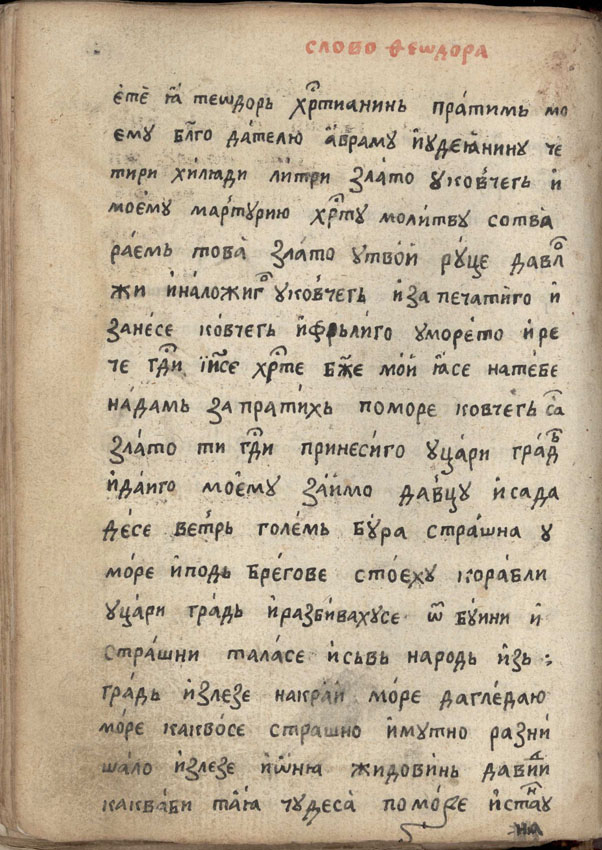 СЛОВО ѲЕѠДОРА
е҆те꙼ ꙗ҆ теѡдорь хрⷭ҇тианинь пра́тимь мо
ему бл҃го дателю а҆враму и҆удеꙗнину че
тири хи́люди ли́три зла́то уковчегь и҆
мое́му мартурию хрⷭ҇ту моли́тву сотва̀
ра́емь това̀ зла́то утво́и ру́це давлⷪ
жи и҆нало́жигⷪ уковчегь и҆за печати́го и҆
зане́се ко́вчегь и҆фрьли́го уморе́то и҆ре
че гдⷭ҇и і҆и҃се хрⷭ҇те бж҃е мо́и ꙗ҆се нате́бе
на́дамь запра́тихь поморе ковчегь са
зла́то ти гдⷭ҇и принеси́го уца́ри гра́дь
и҆да́иго мое́му за́имо да́вцу и҆сада
де́се ве́трь голе́мь бу́ра стра́шна у
мо́ре и҆подь бре́гове стое́ху кора́бли
уца́ри гра́дь и҆разби́вахусе ѿ бу́ини и҆
стра́шни тала́се и҆сьвь наро́дь и҆зь :
гра́дь и҆зле́зе накра́и мо́ре дагле́даю
мо́ре какво́се стра́шно и҆мутно разни
ша́ло и҆зле́зе и҆ѡ́нꙗ жидови́нь давиⷣи
каква́би та́ꙗ чудеса̀ помо́ре и҆стаⷩ҇у
на